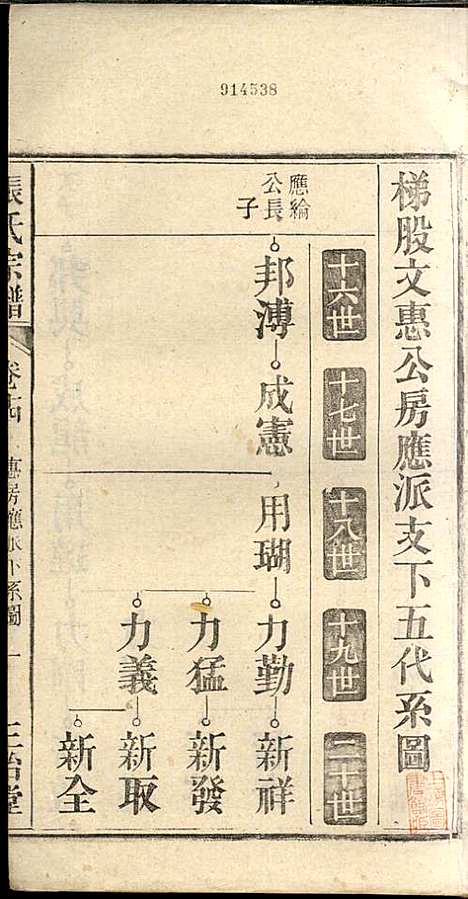 914538
梯股文惠公房應派支下五代系圖
十六世
十七世
十八世
十九世
二十世
應綸
公長
子
邦溥
成憲
用瑚
力勤
新祥
力猛
新發
力義
新取
新全
張氏宗譜
卷十四
惠房應派下系圖
一